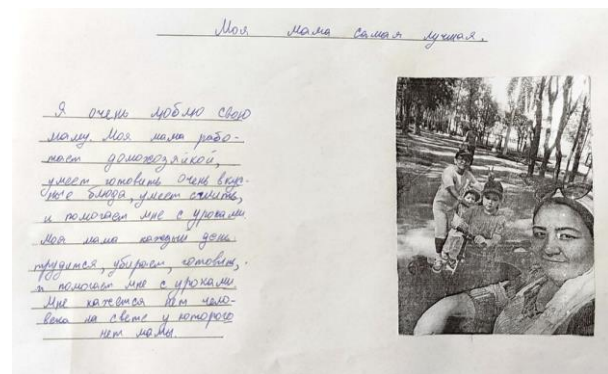 Моя мама самая лучшая.
Я очень люблю свою
маму. Моя мама рабо-
тает домохозяйкой,
умеет готовить очень вкус-
ные блюда, умеет
и помогает мне с уроками
Моя мама каждый день
трудится, убирает, готовит,
и помогает мне с уроками
Мне кажется нет чело-
века на свете у которого
нет мамы.